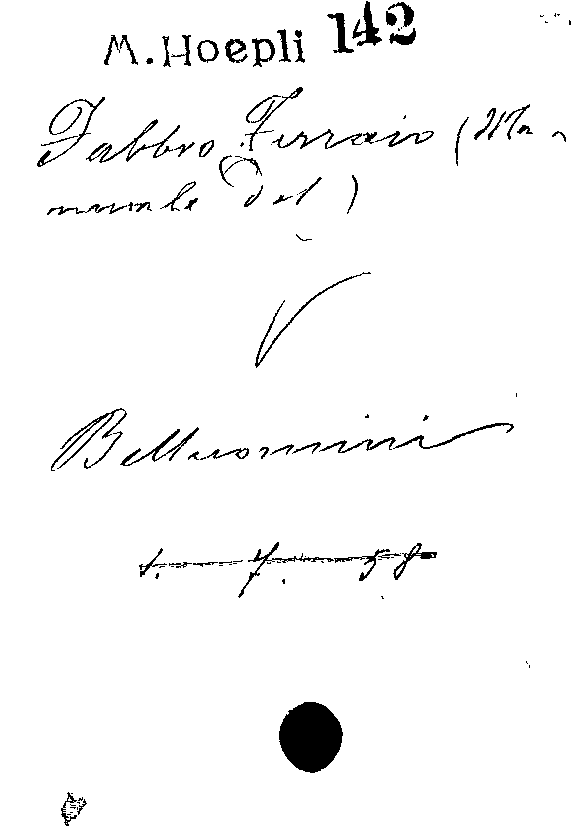 M. Hoepli 142
Fabbro Ferraio (Ma-
nuale del)
V
Belluomini
1. 7. 58